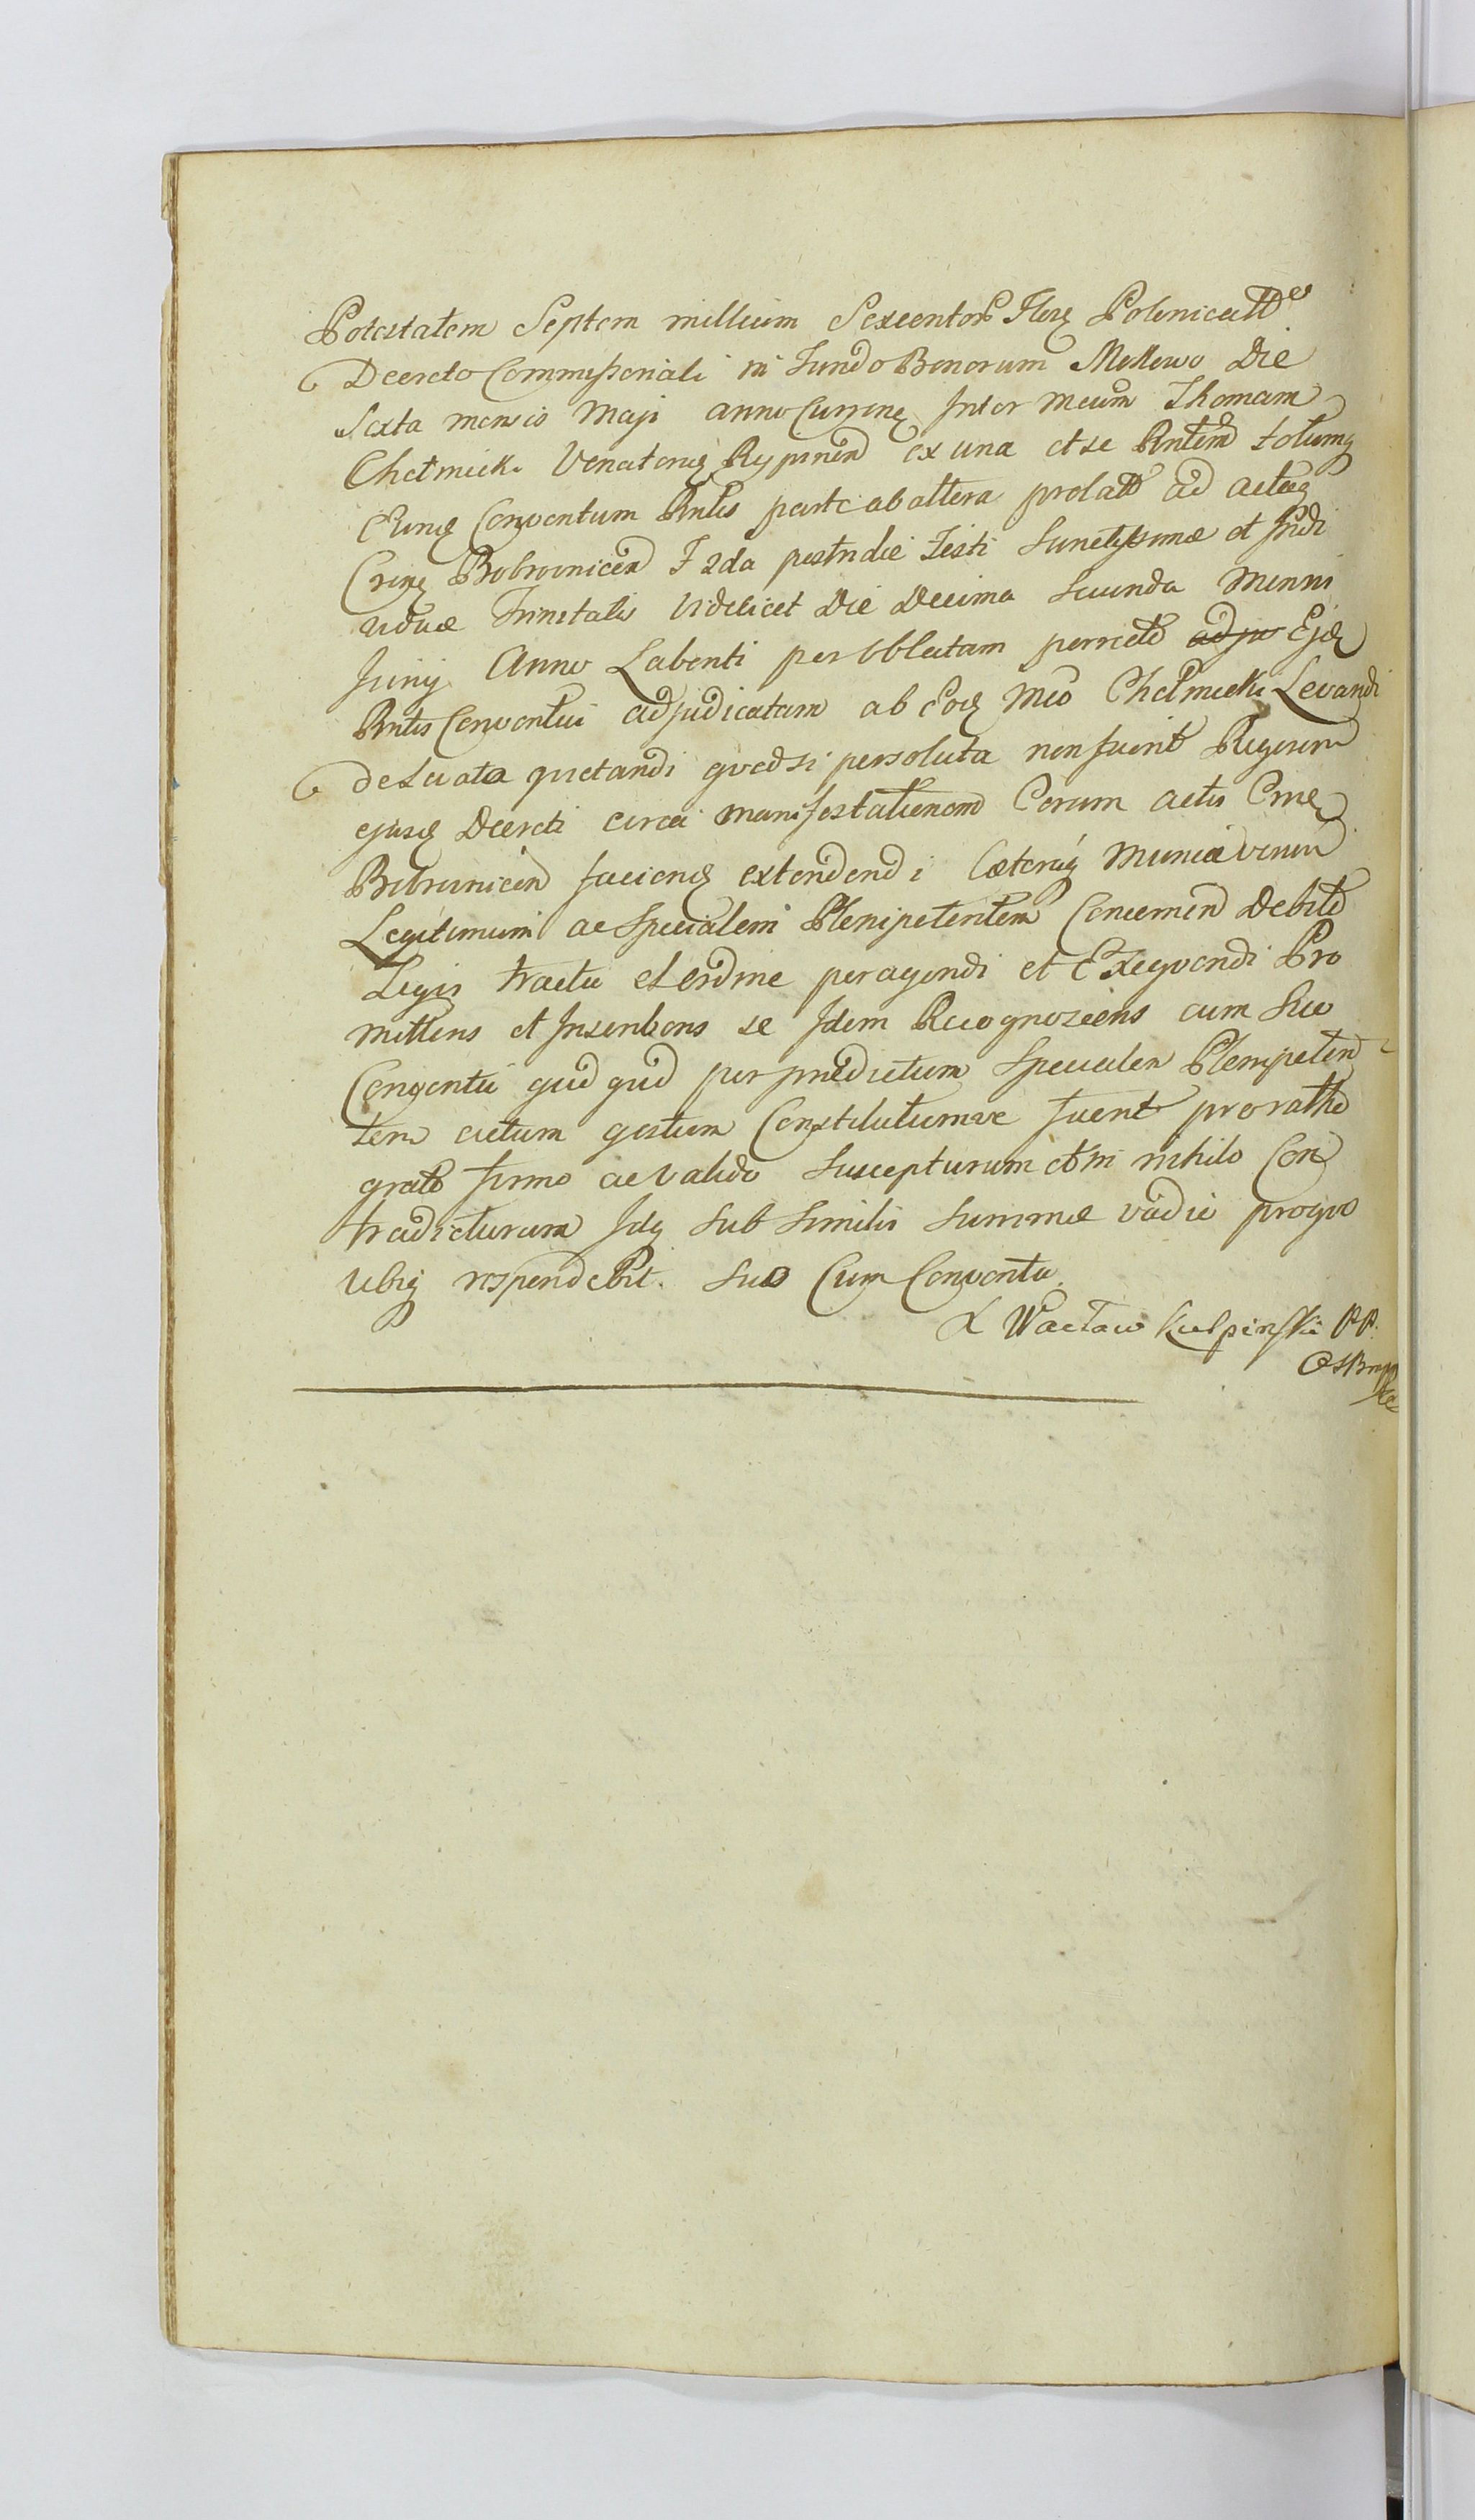 Potestatem Septem millium Sexcentor Flor Polonicall
Decreto Commissoriali in Fundo Bonorum Mellewo Die
Sexta mensis Maji anno Curren Inter Mcum Thomam
Chełmicki Venatore Rypinen ex una et se Rntem totumq
Ejusq Conventum Rntis parte ab altera prolatt ad acta
Bobrovnicen F 2da postridie Festi Sanctissimæ et Indi
viduæ Trinitatis Videlicet Die Decima Secunda Mensis
Junij Anno Labenti per Oblatam porrecto Ejd
Rntis Conventui adjudicatam ab Eod Mco Chełmicki Levandi
de Levata quietandi quodsi persoluta non fuerit Rigorem
ejusd Decreti circa manifestationem Coram actis
Bobrownicen facien extendendi Cæteraq Munia verum
Legitimum ac Specialem Plenipotentem Concernen Debito
Legis tractu et ordine peragendi et Exequendi Pro
mittens et Inscribens se Idem Recognoscens cum Suo
Conventu quidquid per prædictum Specialem Plenipoten
tem actum gestum Constitutumve fuerit pro ratho
grato firmo ac valido Suscepturum et in nihilo Con
tradicturum Idq Sub Similis Summæ vadio proqvo
Ubiq respondebit. Suo Cum Conventu.
X Wacław Kulpinski PP.